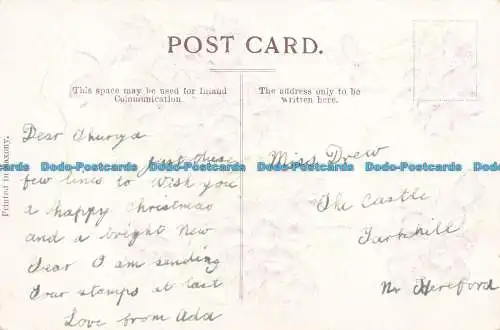 POST CARD.
This space may be used for Inland
Communication.
The address only to be
written here.
Printed in Saxony.
Dear
just these
few lines to wish you
a happy Christmas
and a bright New
Year I am sending
your stamps at last
Love from Ada
Miss Drew
The Castle
Tarkhill
Nr Hereford
Dodo-Postcards Dodo-Postcards Dodo-Postcards Dodo-Postcards